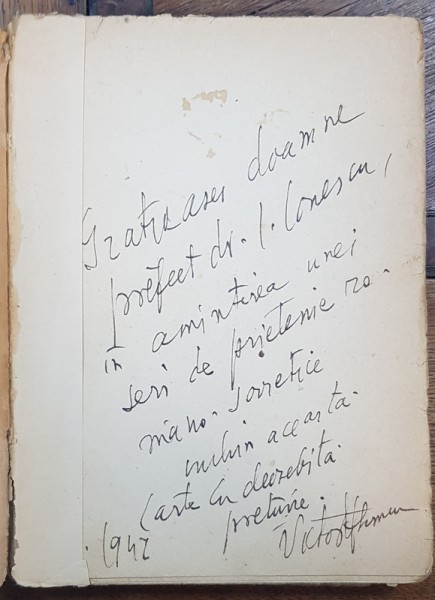 Gratioasei doamne
prefect dr. I. Ionescu,
in amintirea unei
seri de prietenie ro-
mano-sovietice
inchin aceasta
carte cu deosebita
pretuire.
1947 Victor Eftimiu